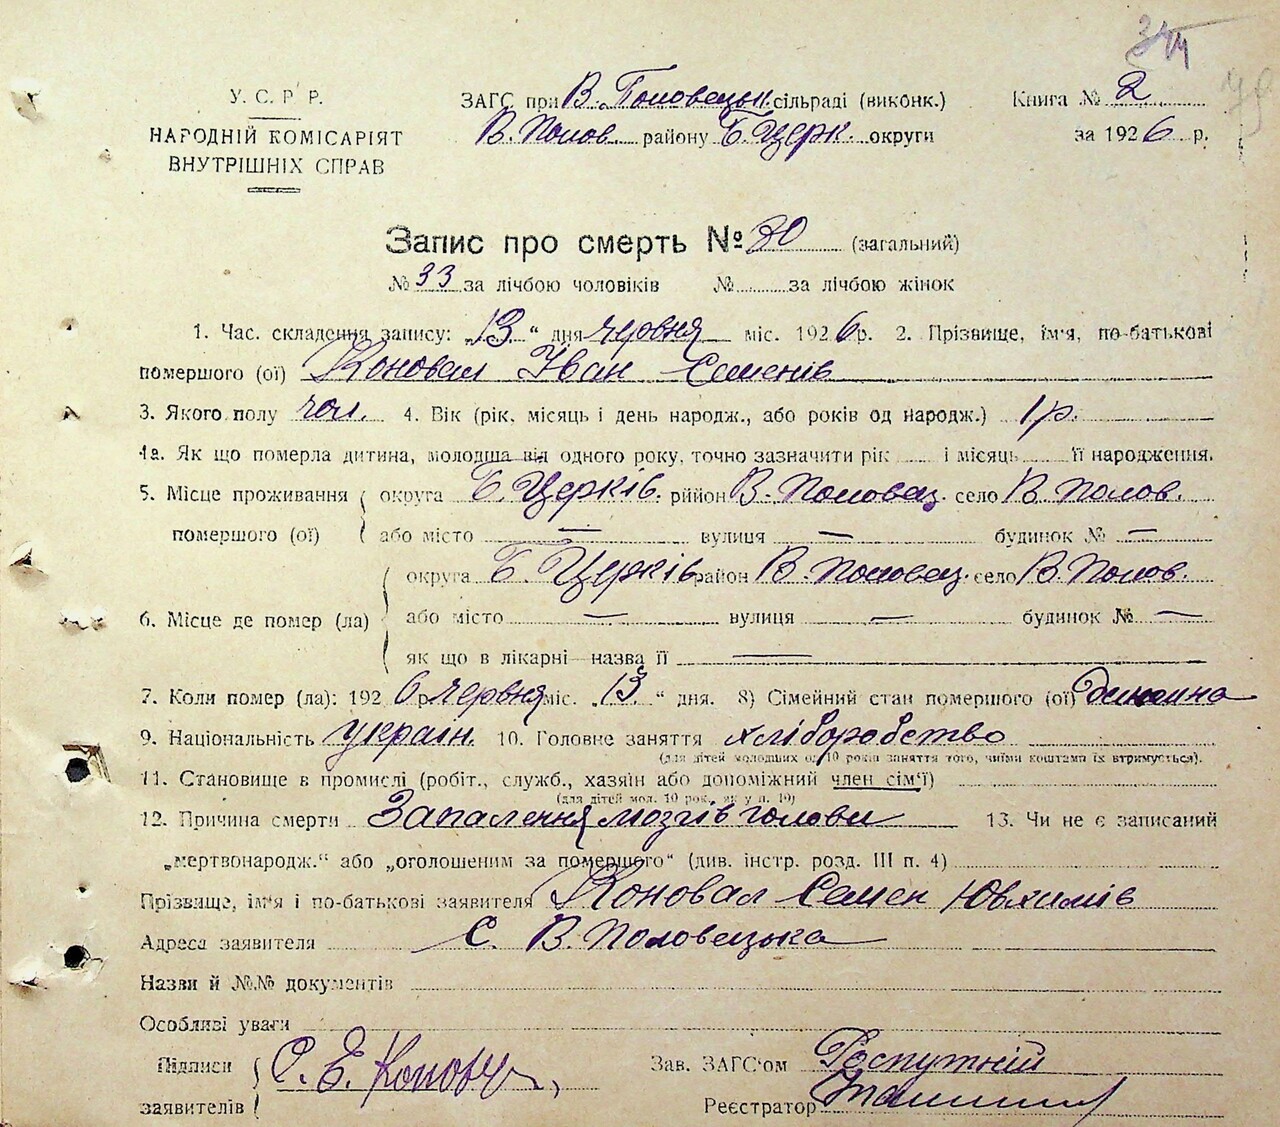 344
У. С. Р Р.
НАРОДНІЙ КОМІСАРІЯТ
ВНУТРІШНІХ СПРАВ
ЗАГС при В. Половецьк. сільраді (виконк.)
В. Полов. району Б. Церк. округи
Книга № 2
за 1926 р.
Запис про смерть № 70 (загальний)
№ 33 за лічбою чоловіків №......за лічбою жінок
1. Час. складення запису: „13“ дня червня міс. 1926 р. 2. Прізвище, ім'я, по-батькові
помершого (ої) Коновал Іван Семенів
3. Якого полу чол. 4. Вік (рік, місяць і день народж., або років од народж.) 1 р.
4а. Як що померла дитина, молодша від одного року, точно зазначити рік ...... і місяць ...... її народження.
5. Місце проживання помершого (ої) округа Б. Церків. рийон В. Половец. село В. Полов.
або місто — вулиця — будинок № —
6. Місце де помер (ла) округа Б. Церків район В. Половец. село В. Полов.
або місто — вулиця — будинок № —
як що в лікарні—назва її —
7. Коли помер (ла): 1926 р. червня міс. „13“ дня. 8) Сімейний стан помершого (ої) дитина
9. Національність україн. 10. Головне заняття хліборобство
(для дітей молодших од 10 років заняття того, чиїми коштами їх втримується).
11. Становище в промислі (робіт., служб., хазяін або допоміжний член сім'ї)
(для дітей мол. 10 рок., як у п. 10)
12. Причина смерти Запалення мозгів голови 13. Чи не є записаний
„мертвонародж.“ або „оголошеним за помершого“ (див. інстр. розд. III п. 4)
Прізвище, ім'я і по-батькові заявителя Коновал Семен Ювхимів
Адреса заявителя С. В. Половецька
Назви й №№ документів
Особливі уваги
Підписи заявителів С. Е. Коновал
Зав. ЗАГС'ом Распутній
Реєстратор